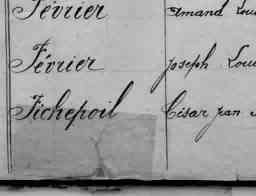 Février Armand Loui
Février Joseph Loui
Fichepoil César Jean